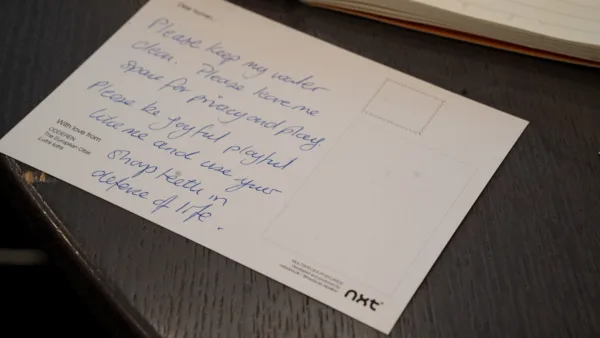 Dear human,
Please keep my water
clean. Please leave me
space for privacy and play
Please be joyful playful
like me and use your
sharp teeth in
defence of life.
With love from
The European Otter
Lutra lutra
nxt